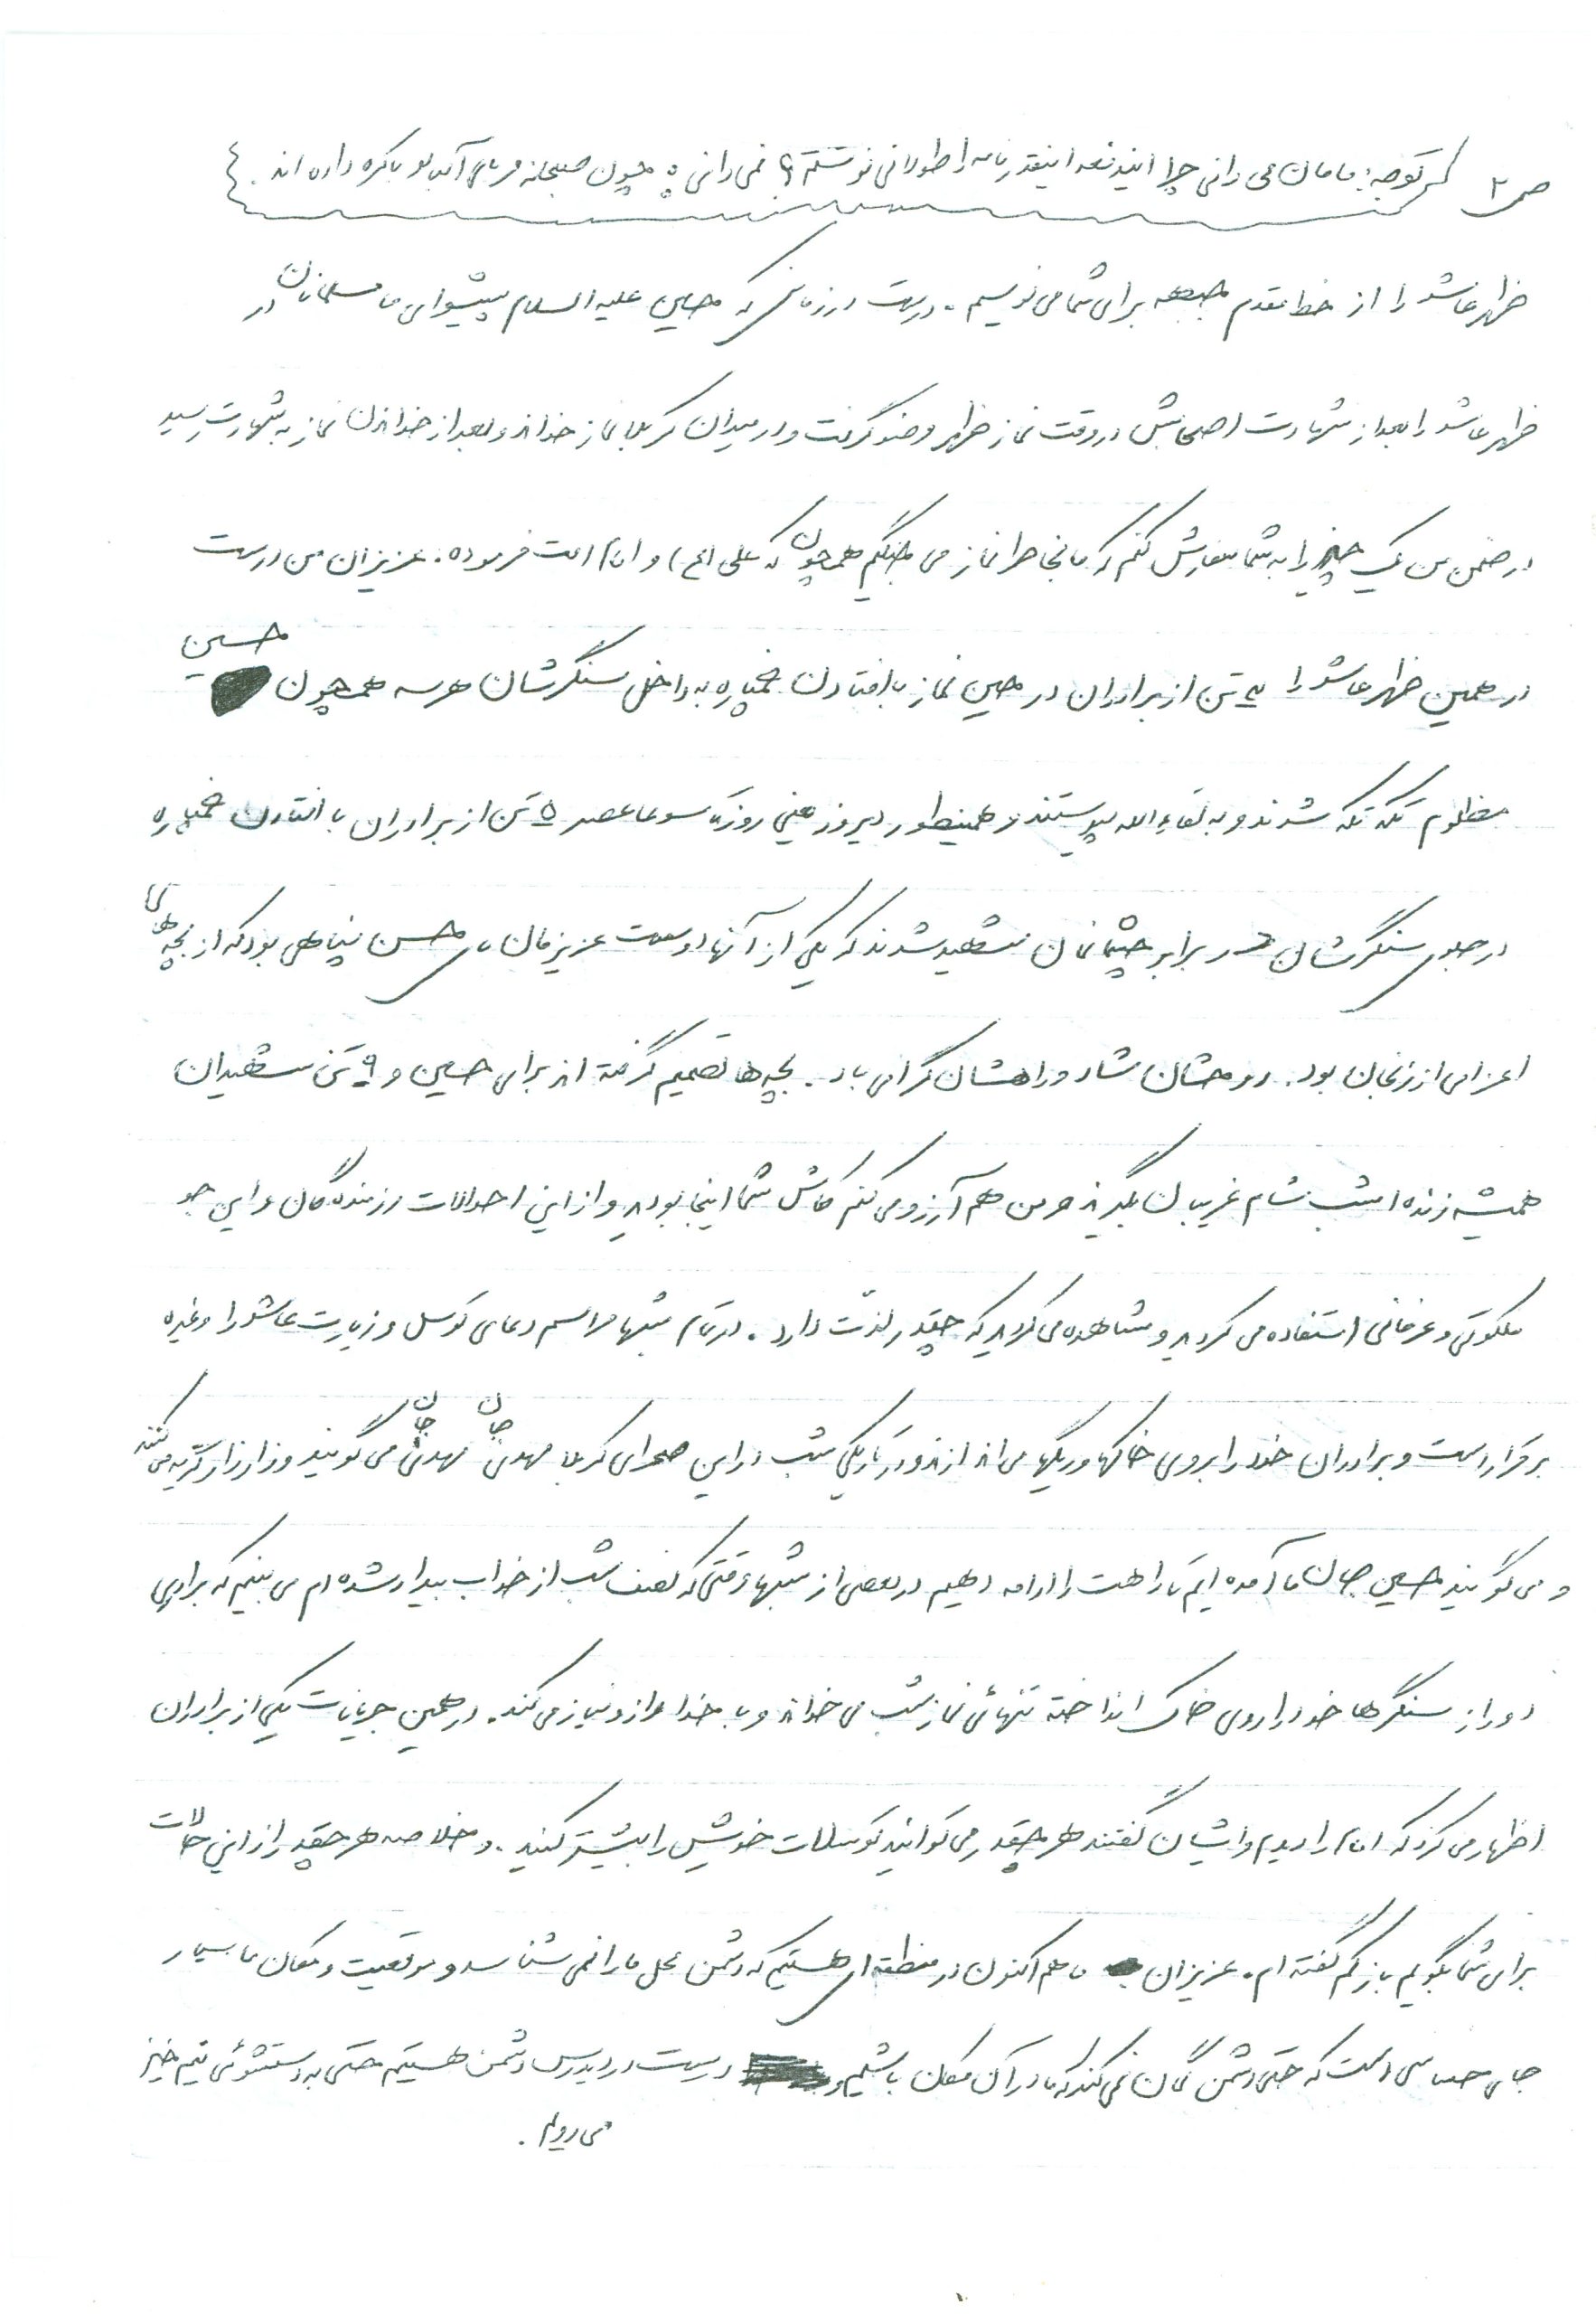 ص ۲ { توجه: مامان می دانی چرا ایندفعه اینقدر نامه را طولانی نوشتم؟ نمی دانی؟ چون صبحانه مربای آلبالو با کره داده اند. }
ظهر عاشورا از خط مقدم جبهه برای شما می نویسم. درست در زمانی که حسین علیه السلام پیشوای ما مسلمانان در
ظهر عاشورا بعد از شهادت اصحابش در وقت نماز ظهر وضو گرفت و در میدان کربلا نماز خواند و بعد از خواندن نماز به شهادت رسید
در ضمن من یک چیز را به شما سفارش کنم که ما بخاطر نماز می جنگیم همچون که علی (ع) و امام امت فرموده. عزیزان من درست
در همین ظهر عاشورا ۳ تن از برادران در حین نماز با افتادن خمپاره به داخل سنگرشان هر سه همچون حسین
مظلوم تکه تکه شدند و به لقاءالله پیوستند و همینطور دیروز یعنی روز تاسوعا عصر ۵ تن از برادران با افتادن خمپاره
در جلو سنگرشان در برابر چشمانمان شهید شدند که یکی از آنها دوست عزیزمان حسن پناهی بود که از بچه های
اعزامی از زنجان بود. روحشان شاد و راهشان گرامی باد. بچه ها تصمیم گرفته اند برای حسین و ۹ تن شهیدان
همیشه زنده امشب شام غریبان بگیرند و من هم آرزو می کنم کاش شما اینجا بودید و از این احوالات رزمنده گان و این جو
ملکوتی و عرفانی استفاده می کردید و مشاهده می کردید که چقدر لذّت دارد. در تمام شبها مراسم دعای توسل و زیارت عاشورا و غیره
برقرار است و برادران خود را بروی خاکها و ریگها می اندازند و در تاریکی شب در این صحرای کربلا مهدی جان مهدی جان می گویند و زار زار گریه می کنند
و می گویند حسین جان ما آمده ایم تا راهت را ادامه دهیم در بعضی از شبها وقتی که نصف شب از خواب بیدار شده ام می بینم که برادری
دور از سنگرها خود را روی خاک انداخته تنهائی نماز شب می خواند و با خدا راز و نیاز می کند. در همین جریانات یکی از برادران
اظهار می کرد که امام را دیدم و ایشان گفتند هر چقدر می توانید توسلات خویش را بیشتر کنید. و خلاصه هر چقدر از این حالات
برای شما بگویم باز کم گفته ام. عزیزان ما هم اکنون در منطقه ای هستیم که دشمن محل ما را نمی شناسد و موقعیت و مکان ما بسیار
جای حساسی است که حتی دشمن گمان نمی کند که ما در آن مکان باشیم و درست در دیدرس دشمن هستیم حتی به دستشوئی نیم خیز
می رویم.